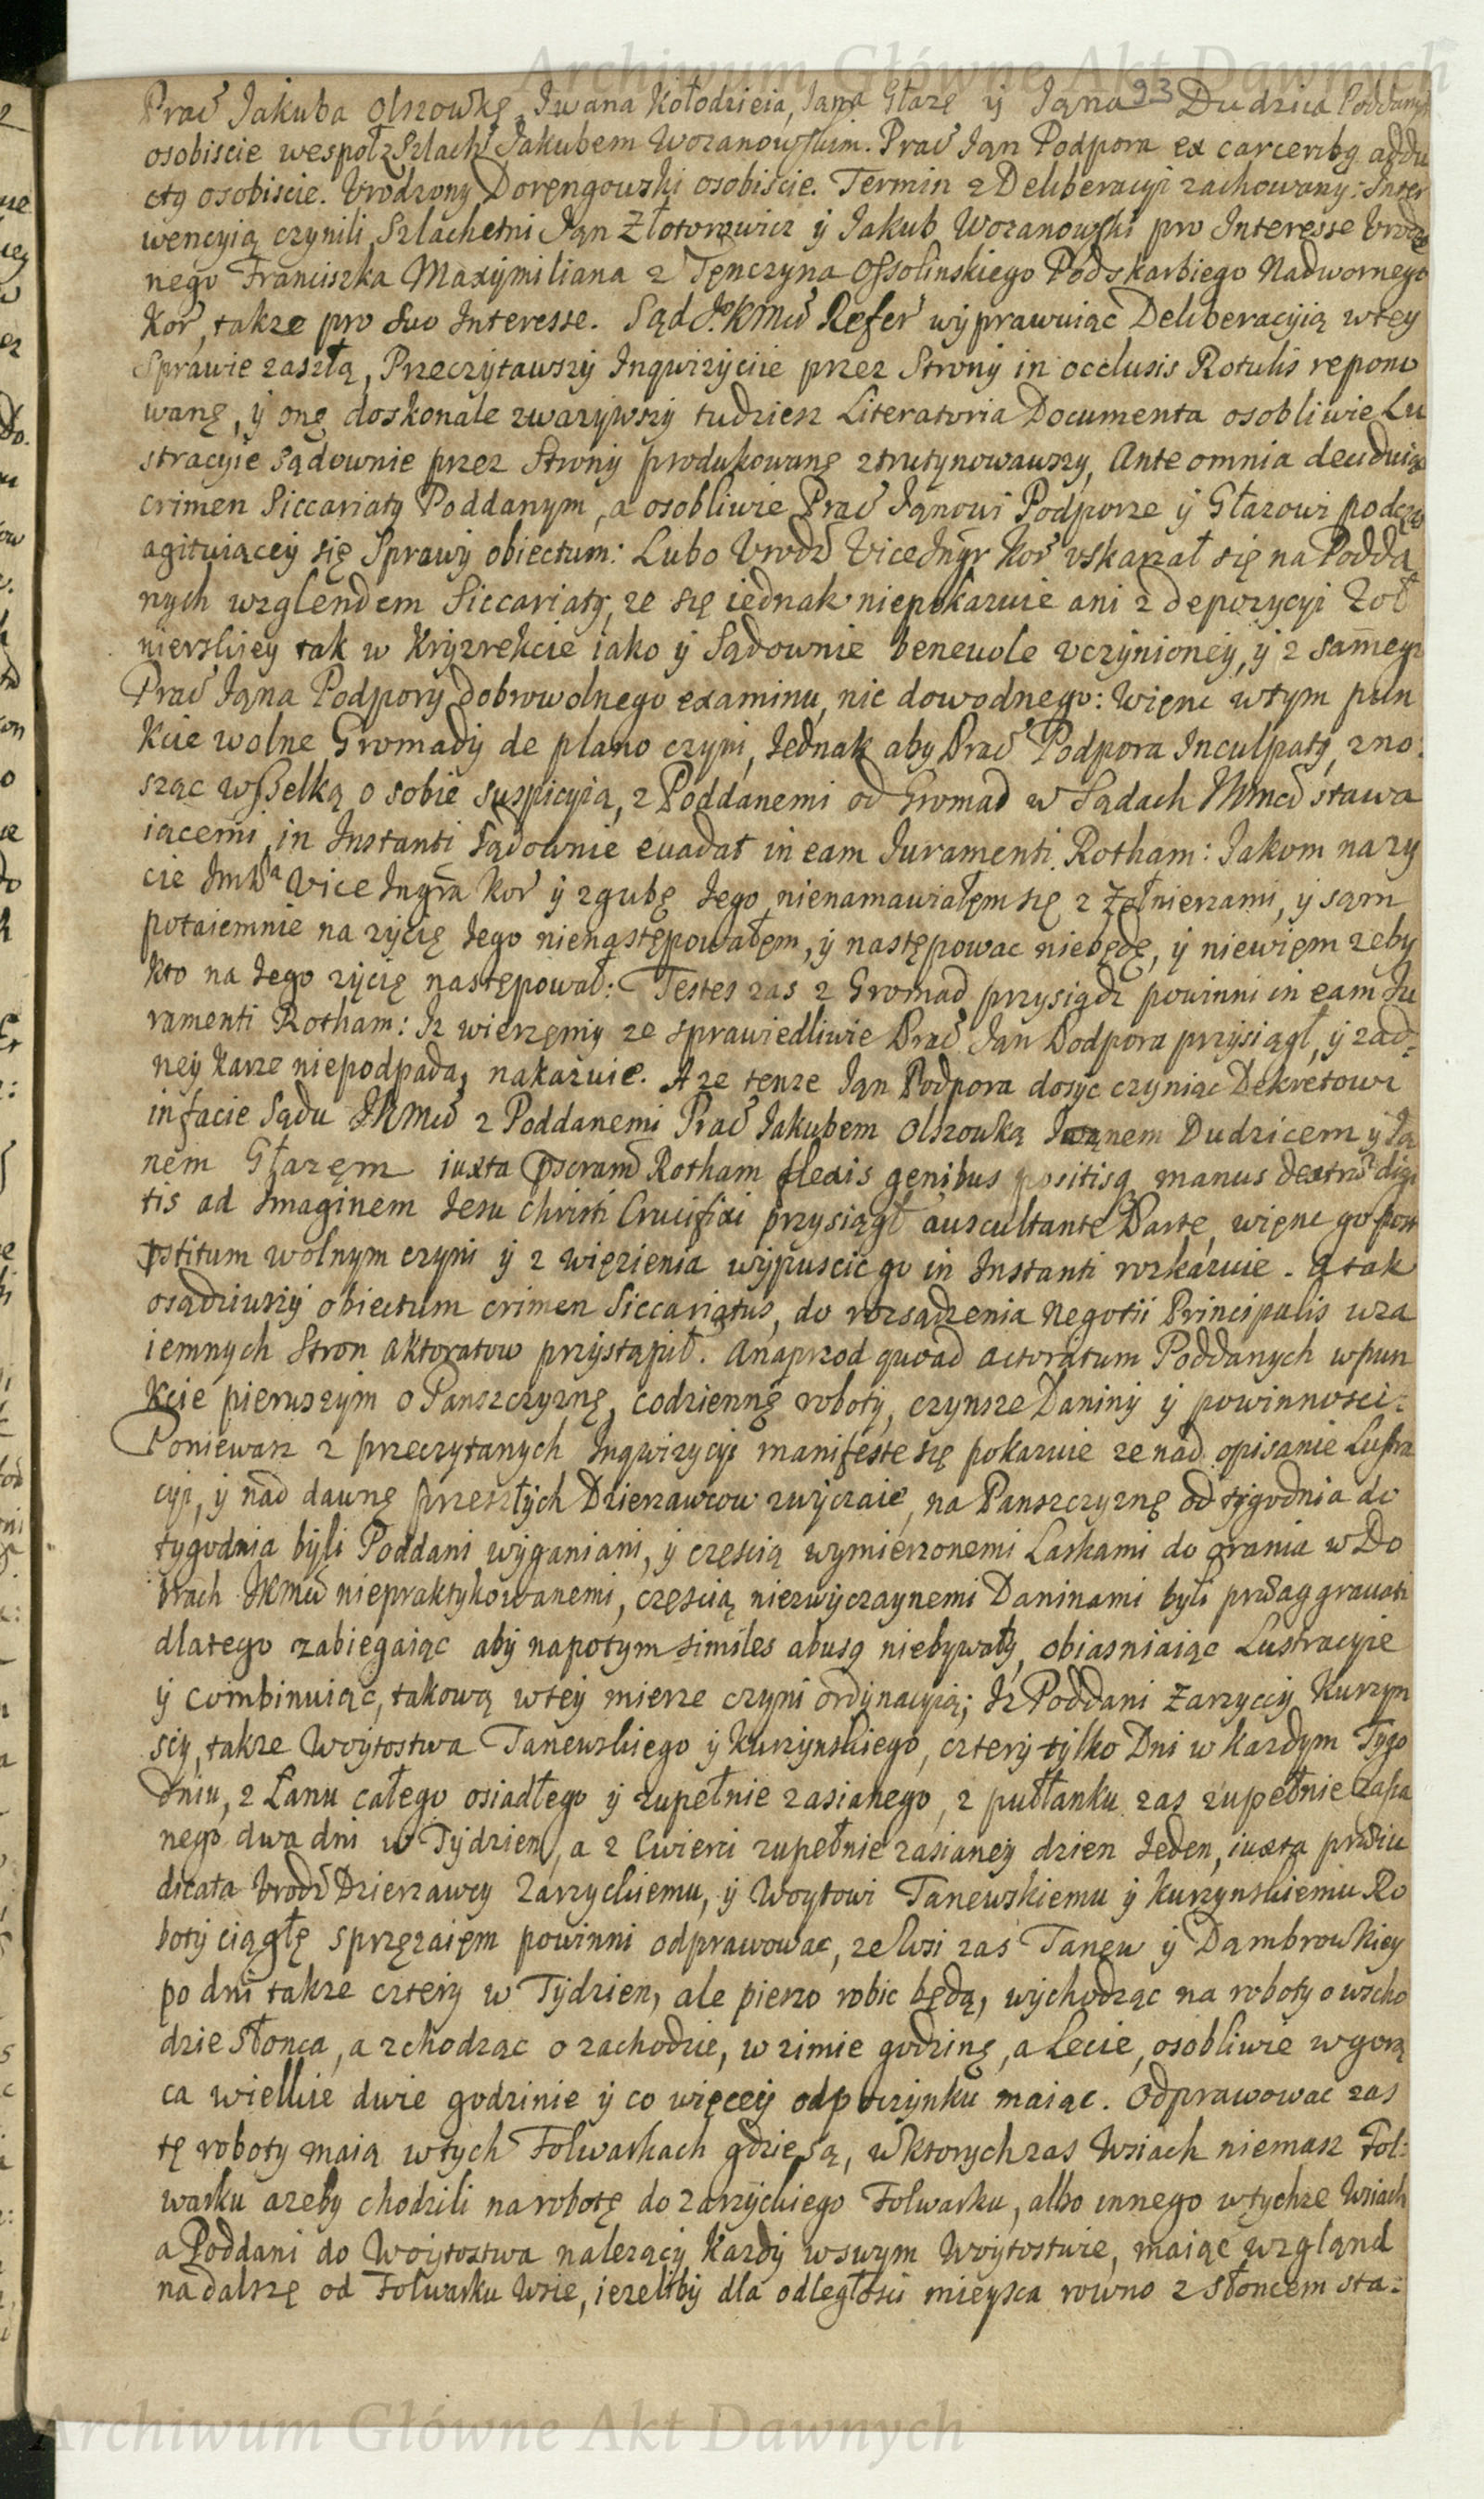 Archiwum Główne Akt Dawnych
93
Prac Jakuba Olszowkę, Iwana Kołodzieia, Jana Głazę ÿ Jąna Dudzica Poddanych
osobiscie wespołz Szlach Jakubem Wozanowskim. Prac Jąn Podpora ex carceribq addu
ctq osobiscie. Vrodzony Doręngowski osobiscie. Termin z Deliberacyi zachowany: Inter
wencyią czynili Szlachetni Jąn Złotorowicz ÿ Jakub Wozanowski pro Interesse Vrodzo
nego Franciszka Maxÿmiliana z Tęnczyna Ossolinskiego Podskarbiego Nadwornego
Kor, takze pro suo Interesse. Sąd J:KMci Refer wÿprawuiąc Deliberacÿią wteÿ
Sprawie zaszłą, Przeczÿtawszÿ Inqwizÿciie przez Stronÿ in occlusis Rotulis repono
wanę, ÿ onę doskonale zwazÿwszÿ tudziesz Literatoria Documenta osobliwie Lu
stracÿie sądownie przez Stronÿ produkowanę ztrutÿnowawszÿ, Ante omnia decÿduiąc
crimen Siccariatq Poddanÿm, a osobliwie Prac Jąnowi Podporze ÿ Głazowi podczas
agituiąceÿ się Sprawÿ obiectum: Lubo Vrodz ViceIngr Kor vskarzał się na Poddą
nÿch wzglendem Siccariatq, ze się iednak niepokazuie ani z depozycyi Zoł
nierskieÿ tak w Krÿzrekcie iako ÿ Sądownie beneuole vczÿnioneÿ, ÿ z samego
Prac Jąna Podporÿ dobrowolnego examinu, nic dowodnego: Więnc wtÿm pun
kcie wolne Gromadÿ de plano czÿni, Jednak aby Prac Podpora Inculpatq, zno:
sząc wsselką o sobie suspicyią, z Poddanemi od Gromad w Sądach JKmci stawa
iącemi, in Instanti sądownie euadat in eam Juramenti Rotham: Jakom nazÿ
cie Jmsci Vice Ingra Kor ÿ zgubę Jego nienamawiałęm się z Zołnierzami, ÿ sąm
potaiemnie na zÿcię Jego nienąstępowałęm, ÿ następowac niebędę, ÿ niewięm zeby
kto na Jego zÿcię następował: Testes zas z Gromad przysiądz powinni in eam Ju
ramenti Rotham: Iz wierzęmÿ ze sprawiedliwie Prac Jąn Podpora przÿsiągł, ÿ zad=
neÿ karze niepodpada, nakazuie. A ze tenze Jąn Podpora dosÿc czÿniąc Dekretowi
infacie Sądu JKMci z Poddanemi Prac Jakubem Olszowką Iwąnem Dudzicem ÿ Ją
nem Głazęm iuxta pscram Rotham flexis genibus positisq manus dextræ digi
tis ad Imaginem Jesu Christi Crucifixi przÿsiągł auscultante Parte, więnc go post
pstitum wolnym czÿni ÿ z więzienia wÿpuscic go in Instanti rozkazuie. A tak
osądziwszÿ obiectum crimen Siccariątus, do rozsądzenia Negotii Principalis wza
iemnÿch Stron aktoratow przÿstąpił. Anaprzod quoad actoratum Poddanych wpun
kcie pierwszÿm o Panszczÿznę, codziennę robotÿ, czÿnsze Daninÿ ÿ powinnosci:
Poniewasz z przeczÿtanÿch Inqwizÿcÿi manifeste się pokazuie ze nad opisanie Lustra
cÿi, ÿ nad dawnę przeszłÿch Dzierzawcow zwÿczaie, na Panszczÿznę od tÿgodnia do
tÿgodnia bÿli Poddani wÿganiani, ÿ częscią wymierzonemi Laskami do orania w Do
brach JKMci niepraktÿkowanemi, częscią niezwÿczaÿnemi Daninami bÿli præaggrauati
dlatego zabiegaiąc abÿ napotÿm similes abusq niebÿwałÿ, obiasniaiąc Lustracyie
ÿ combinuiąc, takową wteÿ mierze czÿni ordÿnacÿią; Iz Poddani Zarzyccÿ Kurzÿn
scÿ, takze Woÿtostwa Tanewskiego ÿ Kurzÿnskiego, czterÿ tÿlko Dni w kazdÿm Tÿgo
dniu, z Łanu całego osiadłego ÿ zupełnie zasianego, z pułłanku zas zupełnie zasia
nego dwa dni w Tÿdzien, a z Cwierci zupełnie zasianeÿ dzien Jeden, iuxta præiu
dicata Vrodz Dzierzawcy Zarzyckiemu, ÿ Woytowi Tanewskiemu ÿ Kurzynskiemu Ro
botÿ ciągłę sprzęzaięm powinni odprawowac, ze Wsi zas Tanęw ÿ Dąmbrowkiey
po dni takze czterÿ w Tÿdzien, ale pieszo robic będą, wÿchodząc na robotÿ o wscho
dzie Słonca, a zchodząc o zachodzie, w zimie godzinę, a Lecie, osobliwie w gorą
ca wielkie dwie godzinie ÿ co więceÿ odpoczÿnku maiąc. Odprawowac zas
tę robotÿ maią wtÿch Folwarkach gdzie są, w ktorÿch zas Wsiach niemasz Fol:
warku azeby chodzili na robotę do Zarzÿckiego Folwarku, albo innego wtÿchze Wsiach
a Poddani do Woÿtostwa nalezącÿ kazdÿ wswÿm Woÿtostwie, maiąc wzgląnd
na dalszę od Folwarku Wsie, iezelibÿ dla odległosci mieÿsca rowno z słoncem sta:
Archiwum Główne Akt Dawnych